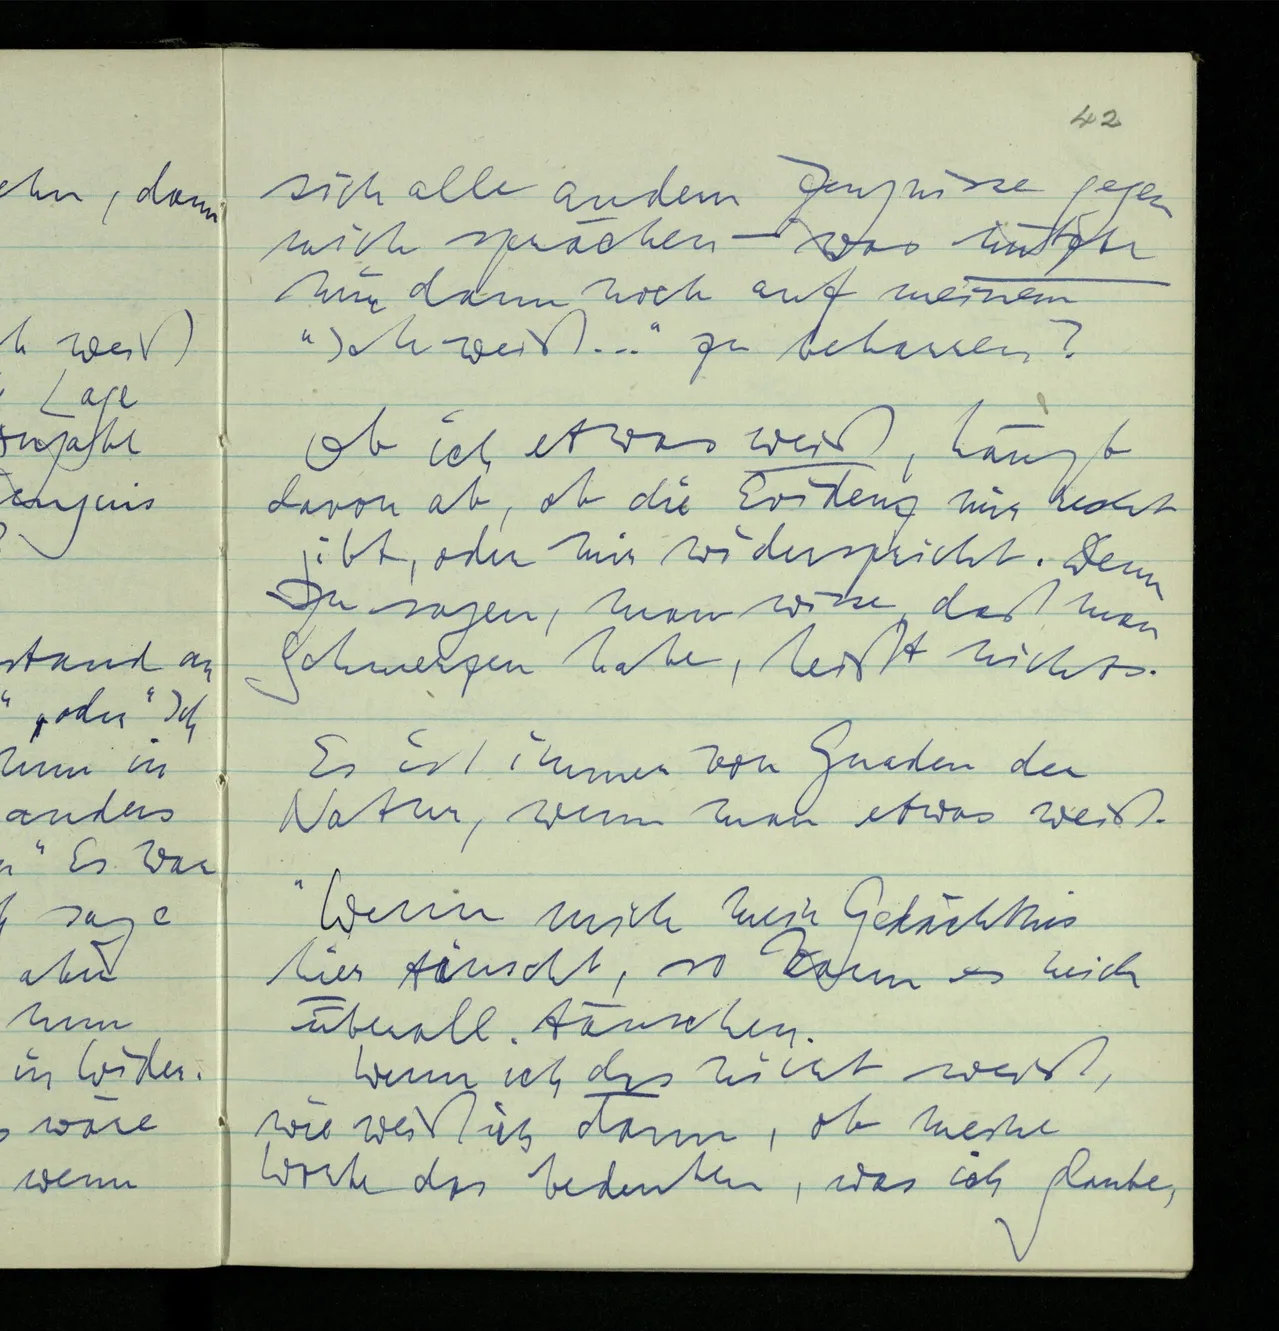 42
ehn, dann
h weiß
Lage
Zeugnis
stand an
" „oder "Ich
nun in
anders
" Es war
sage
aber
nun
in Wider-
wäre
wenn
sich alle andern Zeugnisse gegen
mich sprächen – was nützte
mir dann noch auf meinem
"Ich weiß..." zu beharren?
Ob ich etwas weiß, hängt
davon ab, ob die Evidenz mir recht
gibt, oder mir widerspricht. Denn
zu sagen, man wisse, daß man
Schmerzen habe, heißt nichts.
Es ist immer von Gnaden der
Natur, wenn man etwas weiß.
"Wenn mich mein Gedächtnis
hier täuscht, so kann es mich
überall täuschen.
Wenn ich das nicht weiß,
wie weiß ich dann, ob meine
Worte das bedeuten, was ich glaube,